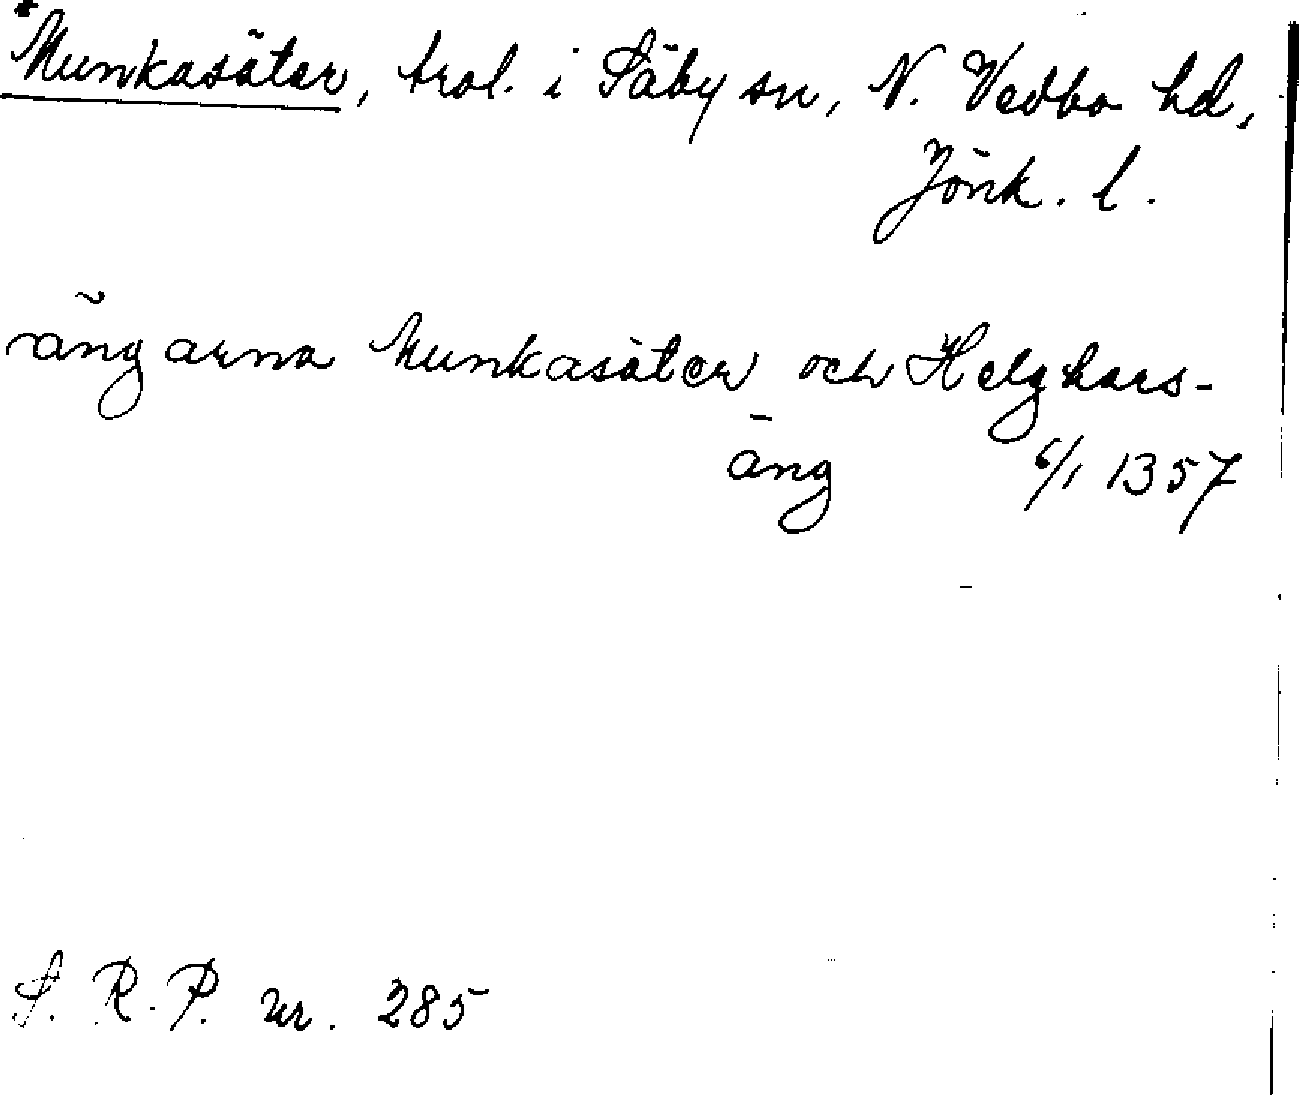 *Munkasäter, trol. i Säby sn, N. Vedbo hd,
Jönk. l.
ängarna Munkasäter och Helghars-
äng 6/1 1357
S. R. P. nr. 285